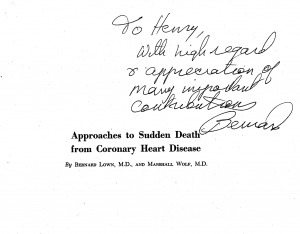 To Henry,
With high regard
& appreciation of
many important
contributions
Bernard
Approaches to Sudden Death
from Coronary Heart Disease
By BERNARD LOWN, M.D., AND MARSHALL WOLF, M.D.